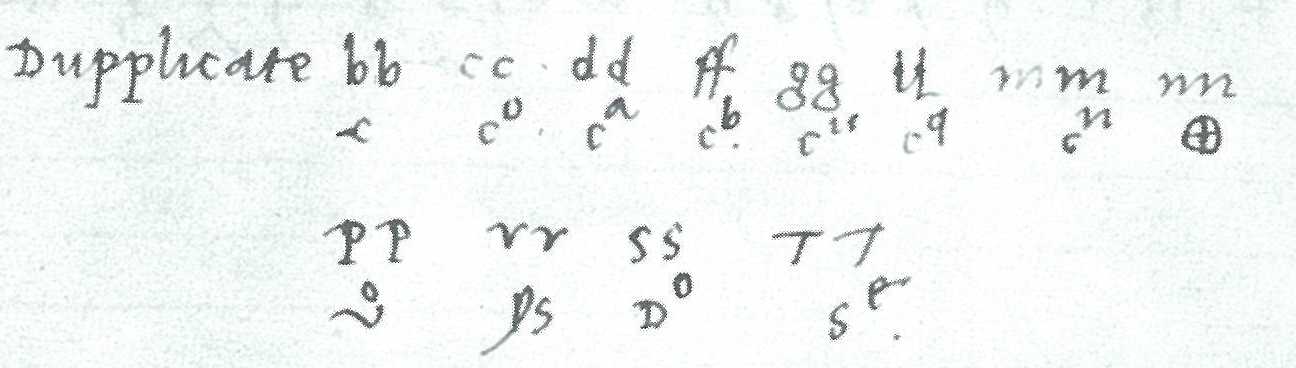 Dupplicate bb cc dd ff gg ll mm nn
c c⁰ cᵃ cᵇ. c cq cⁿ ⊕
pp rr ss TT
ps D⁰ sᵉ.